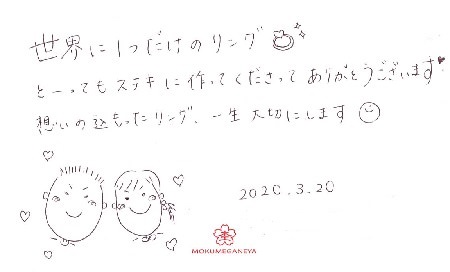 世界に1つだけのリング
とーってもステキに作ってくださってありがとうございます♥
想いの込もったリング、一生大切にします
2020.3.20
MOKUMEGANEYA